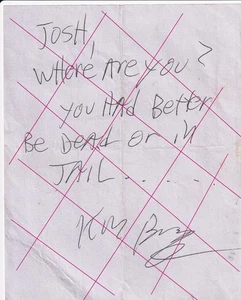 JOSH,
WHERE ARE YOU?
YOU HAD BETTER
BE DEAD OR IN
JAIL.....